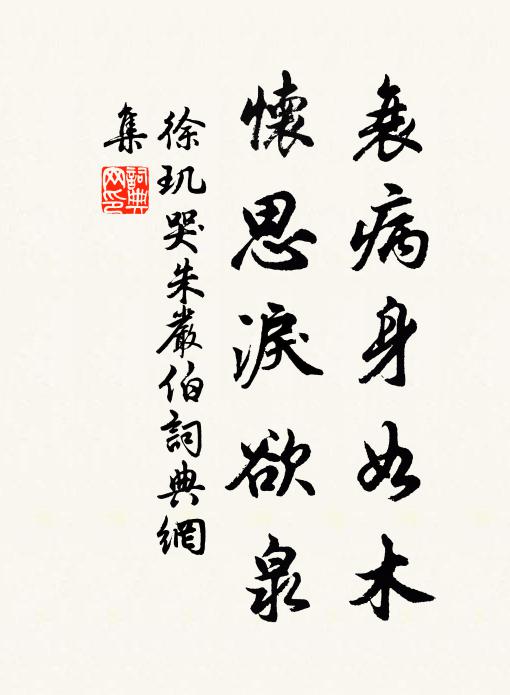 衰病身如木
懷思淚欲泉
徐玑哭朱嚴伯詞典網
集
詞典網印